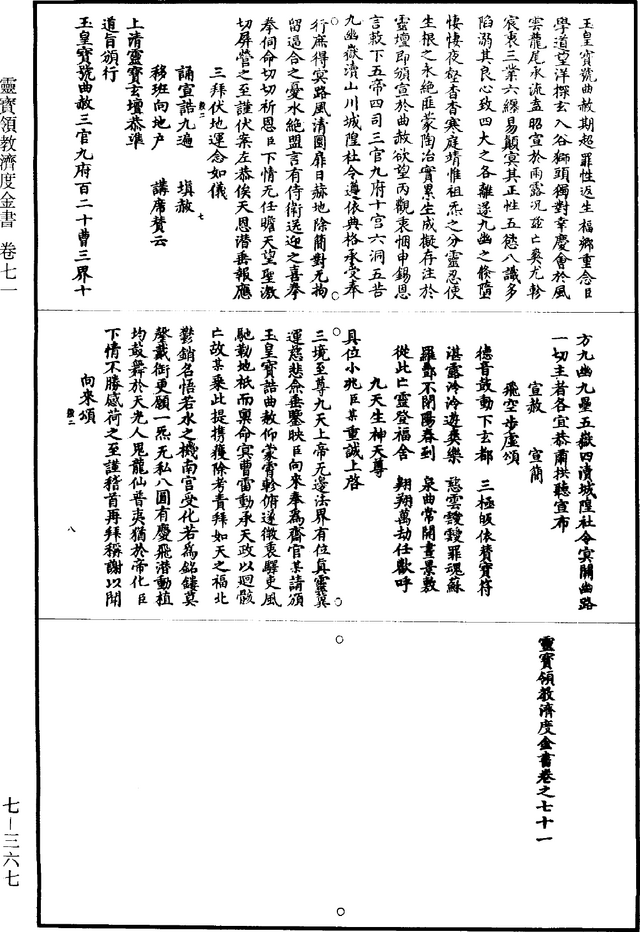 靈寶領教濟度金書 卷七一
七-三六七
玉皇寶號曲赦期超罪性返生福鄉重念臣
學道望洋探玄入谷獅頭獨對幸慶會於風
雲龍尾永流盍昭宣於雨露況茲亡㚖尤軫
宸衷三業六繆易顛冥其正性五慾八識多
陷溺其良心致四大之各離遂九幽之倏墮
悽悽夜壑杳杳寒庭靖惟祖炁之分靈忍使
生根之永絕匪蒙陶冶實累生成擬存注於
靈壇即頒宣於曲赦欲望丙觀衷悃申錫恩
言敕下五帝四司三官九府十宮六洞五岳
九幽嶽瀆山川城隍社令遵依典格承受奉
行庶得冥路風清圜扉日赫地除簡對无拘
留逼合之憂水絕盟言有侍衛送迎之喜拳
奉伺命切切祈恩臣下情无任瞻天望聖激
切屏營之至謹伏案左恭俟天恩潛垂報應
三拜伏地運念如儀
誦宣誥九遍 填赦
移班向地戶 講席贊云
上清靈寶玄壇恭準
道旨頒行
玉皇寶號曲赦三官九府百二十曹三界十
方九幽九壘五嶽四瀆城隍社令冥關幽路
一切主者各宜恭肅拱聽宣布
宣赦 宣簡
飛空步虛頌
德音鼓動下玄都 三極皈依贊寶符
湛露泠泠遊爽樂 慈雲靉靉罪魂蘇
羅酆不閉陽春到 泉曲常開晝景敷
從此亡靈登福舍 翱翔萬劫任歡呼
九天生神天尊
具位小兆臣某重誠上啓
三境至尊九天上帝无邊法界有位真靈冀
運慈悲僉垂鑒映臣向來奉為齋官某請頒
玉皇寶誥曲赦仰蒙霄軫俯遂微衷驛吏風
馳勤地祇而興命冥曹雷動承天政以迴骸
亡故某乘此提攜獲除考責拜如天之福北
鬱銷名悟若水之機南宮受化若為銘鏤莫
罄戴銜更願一炁无私八圓有慶飛潛動植
均鼓舞於天光人鬼龍仙普夷猶於帝化臣
下情不勝感荷之至謹稽首再拜稱謝以聞
向來頌
靈寶領教濟度金書卷之七十一